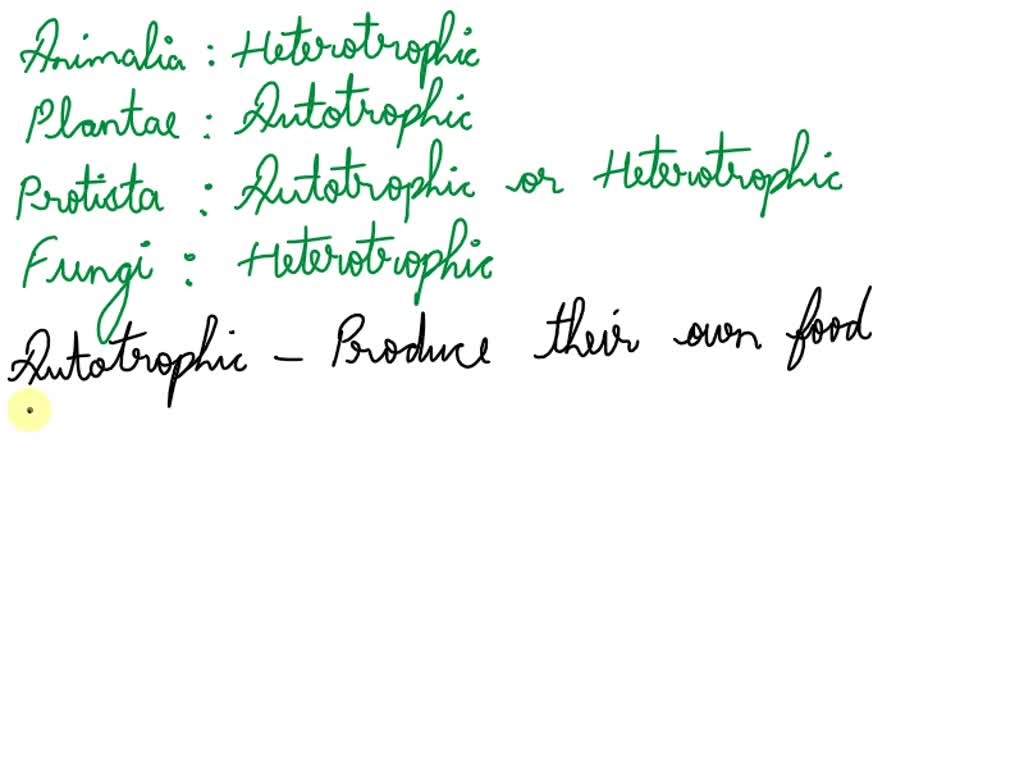 Animalia : Heterotrophic
Plantae : Autotrophic
Protista : Autotrophic or Heterotrophic
Fungi : Heterotrophic
Autotrophic - Produce their own food